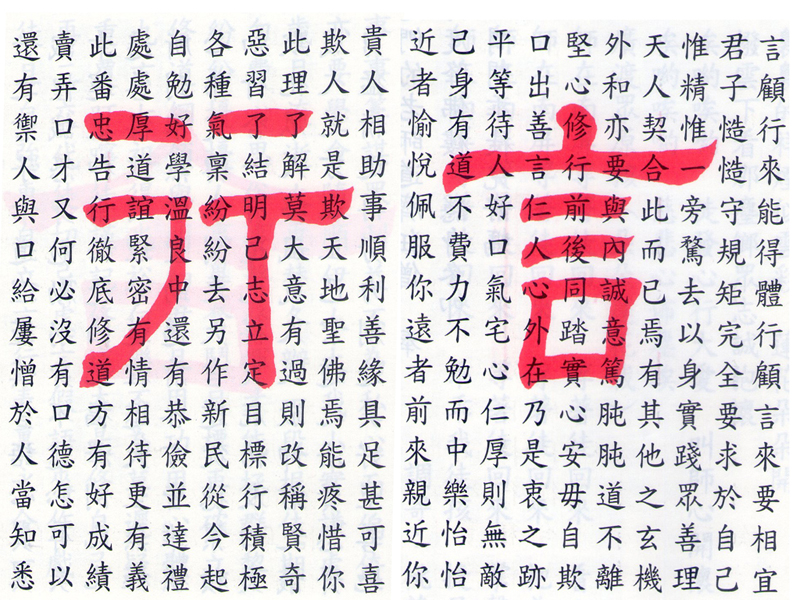 言顧行來能得體行顧言來要相宜
君子慥慥守規矩完全要求於自己
惟精惟一旁騖去以身實踐眾善理
天人契合此而已焉有其他之玄機
外和亦要與內誠意篤肫肫道不離
堅心修行前後同踏實心安毋自欺
口出善言仁人心外在乃是衷之跡
平等待人好口氣宅心仁厚則無敵
己身有道不費力不勉而中樂怡怡
近者愉悅佩服你遠者前來親近你
貴人相助事順利善緣具足甚可喜
欺人就是欺天地聖佛焉能疼惜你
此理了解莫大意有過則改稱賢奇
惡習了結明己志立定目標行積極
各種氣稟紛紛去另作新民從今起
自勉好學溫良中還有恭儉並達禮
處處厚道誼緊密有情相待更有義
此番忠告行徹底修道方有好成績
賣弄口才又何必沒有口德怎可以
還有禦人與口給屢憎於人當知悉
言行